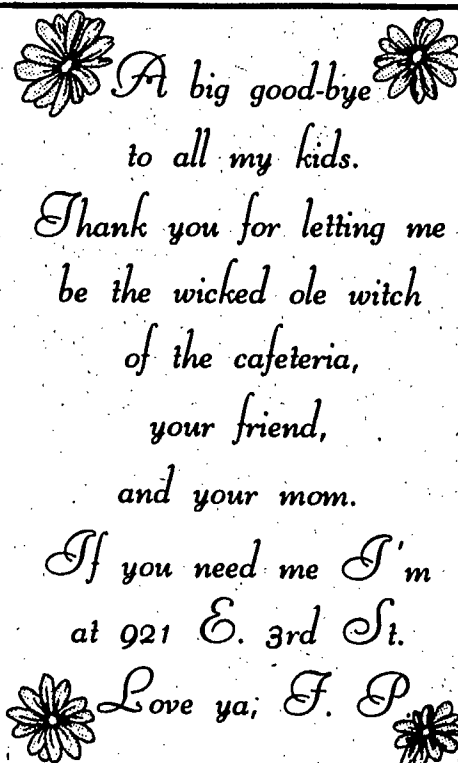 A big good-bye
to all my kids.
Thank you for letting me
be the wicked ole witch
of the cafeteria,
your friend,
and your mom.
If you need me I'm
at 921 E. 3rd St.
Love ya, F. P